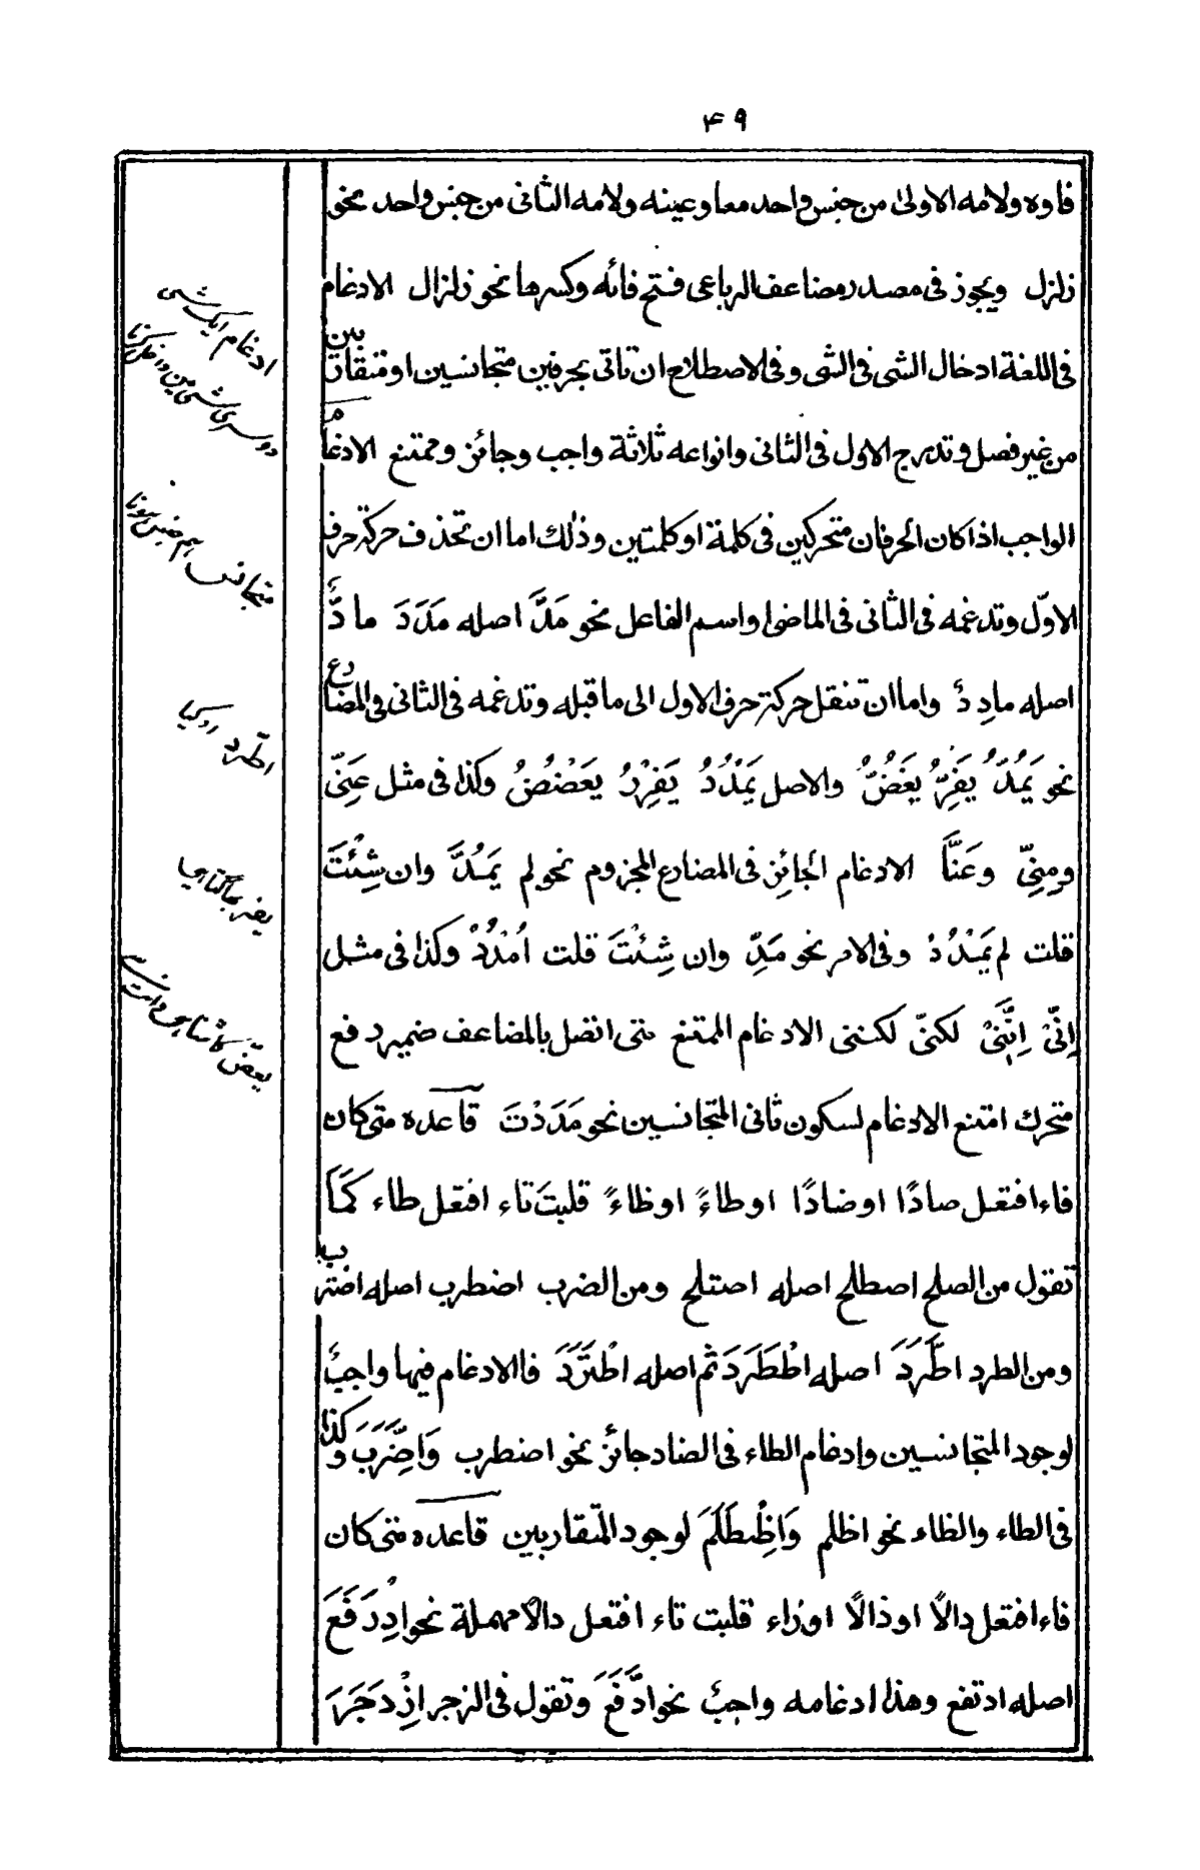 ۴۹
فاوه ولامه الاولىٰ من جنس واحد معا وعينه ولامه الثانى من جنس واحد نحو
زلزل ويجوز فى مصدر مضاعف الرباعى فتح فائه وكسرها نحو زلزال الادغام
فى اللغة ادخال الشى فى الشى وفى الاصطلاح ان تاتى بحرفين متجانسين او متقاربين
من غير فصل وتدرج الاول فى الثانى وانواعه ثلاثة واجب وجائز وممتنع الادغام
الواجب اذا كان الحرفان متحركين فى كلمة او كلمتين وذٰلك اما ان تحذف حركة حرف
الاوّل وتدغمه فى الثانى فى الماضى واسم الفاعل نحو مَدَّ اصله مَدَدَ مادٌّ
اصله مادِدٌ واما ان تنقل حركة حرف الاول الى ما قبله وتدغمه فى الثانى فى المضارع
نحو يَمُدُّ يَفِرُّ يَغَضُّ والاصل يَمْدُدُ يَفْرِرُ يَعْضُضُ وكذا فى مثل عَنِّى
ومِنِّى وعَنَّا الادغام الجائِز فى المضارع المجزوم نحو لم يَمُدَّ وان شِئْتَ
قلت لم يَمْدُدْ وفى الامر نحو مَدِّ وان شِئْتَ قلت اُمْدُدْ وكذا فى مثل
اِنِّىْ اِنَّنِىْ لكنّى لكننى الادغام الممتنع متى اتصل بالمضاعف ضمير رفع
متحرك امتنع الادغام لسكون ثانى المتجانسين نحو مَدَدْتَ قاعده متى كان
فاء افتعل صادًا او ضادًا او طاءً او ظاءً قلبت تاء افتعل طاء كَمَا
تقول من الصلح اصطلح اصله اصتلح ومن الضرب اضطرب اصله اضترب
ومن الطرد اطَّرَدَ اصله اطْطَرَدَ ثم اصله اطْتَرَدَ فاالادغام فيها واجبٌ
لوجود المتجانسين وادغام الطاء فى الضاد جائز نحو اضطرب وَاضَّرَبَ وكذا
فى الطاء والظاء نحو اظلم وَاظْطَلَمَ لوجود المتقاربين قاعده متى كان
فاء افتعل دالًا او ذالًا او زاء قلبت تاء افتعل دالا مهملة نحو ادْدَفَعَ
اصله ادتفع وهذا ادغامه واجبٌ نحو ادَّفَعَ وتقول فى الزجر ازْدَجَرَ
ادغام ایک شی
دوسری شی میں داخل کرنا
متجانس ہم جنس ہونا
اطّرد
یفر بھاگتا ہے